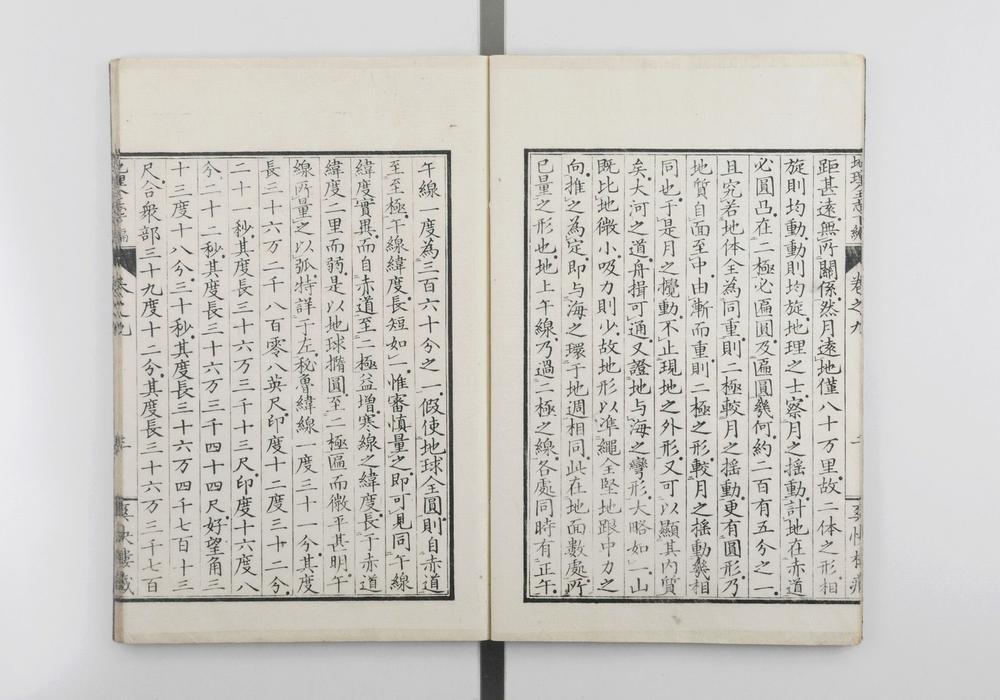 距甚遠無所關係然月遠地僅八十万里故二体之形相
旋則均動動則均旋地理之士察月之揺動計地在赤道
必圓凸在二極必匾圓及匾圓幾何約二百有五分之一
且究若地体全為同重則二極較月之揺動更有圓形乃
地質自面至中由漸而重則二極之形較月之揺動幾相
同也于是月之攪動不止現地之外形又可以顯其内質
矣大河之道舟揖可通又證地与海之彎形大略如一山
既比地微小吸力則少故地形以準繩全堅地跟中力之
向推之為定即与海之環于地週相同此在地面數處所
已量之形也地上午線乃過二極之線各處同時有正午
午線一度為三百六十分之一假使地球全圓則自赤道
至至極午線緯度長短如一惟審慎量之即可見同午線
緯度實異而自赤道至二極益增寒線之緯度長于赤道
緯度二里而弱是以地球撱圓至二極匾而微平甚明午
線所量之以弧特詳于左秘魯緯線一度三十一分其度
長三十六万二千八百零八英尺印度十二度三十二分
二十一秒其度長三十六万三千十三尺印度十六度八
分二十二秒其度長三十六万三千四十四尺好望角三
十三度十八分三十秒其度長三十六万四千七百十三
尺合衆部三十九度十二分其度長三十六万三千七百